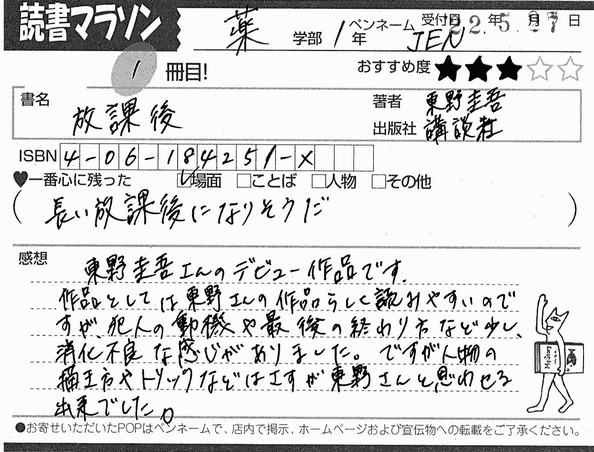 読書マラソン
薬 学部 1年 ペンネーム JEN 受付日 22年5月27日
1 冊目! おすすめ度 ★★★☆☆
書名 放課後
著者 東野圭吾
出版社 講談社
ISBN 4-06-184251-X
♥一番心に残った ☑場面 □ことば □人物 □その他
(長い放課後になりそうだ)
感想
東野圭吾さんのデビュー作品です.
作品としては東野さんの作品らしく読みやすいので
すが、犯人の動機や最後の終わり方など少し、
消化不良な感じがありました。ですが人物の
描き方やトリックなどはさすが東野さんと思わせる
出来でした。
●お寄せいただいたPOPはペンネームで、店内で掲示、ホームページおよび宣伝物への転載をご了承ください。